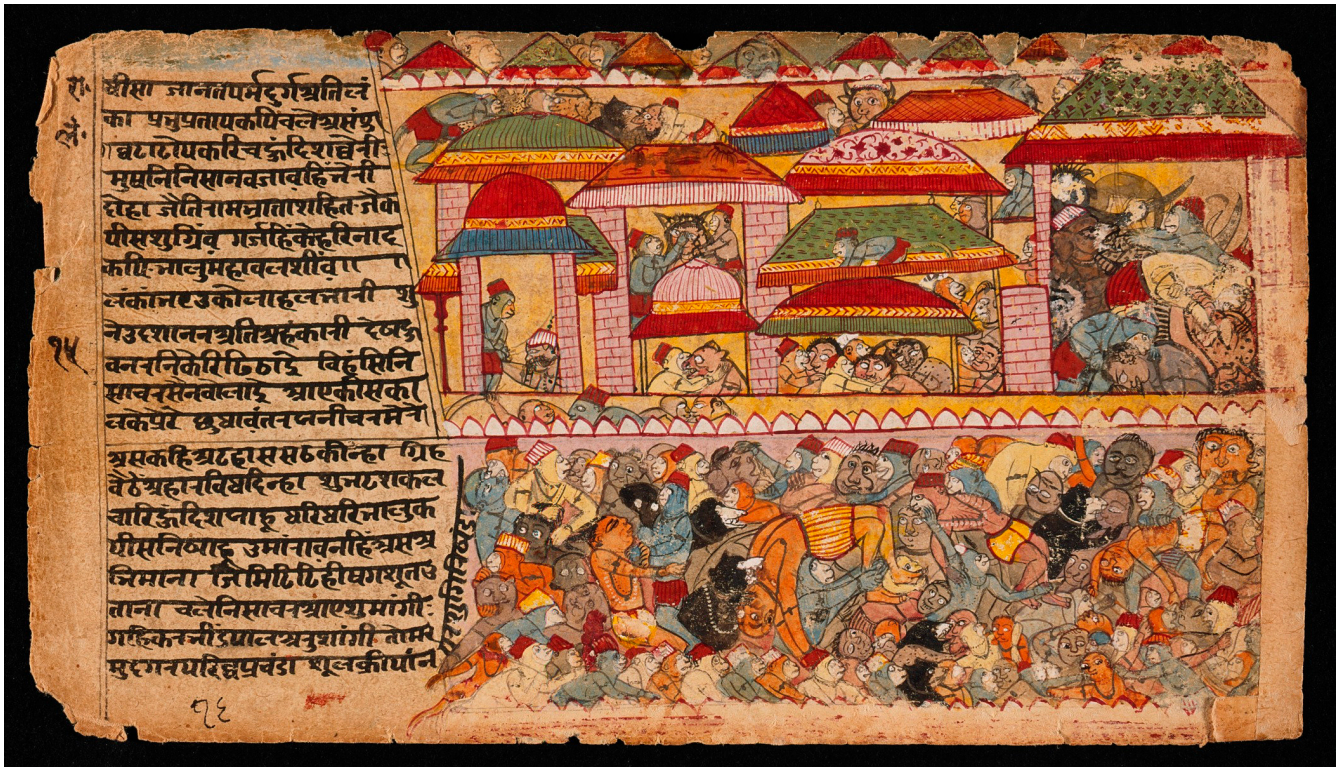 रा॰
धीसा जानतपर्मदुर्गअतिलं
लं॰
का प्रभुप्रतापकपिचलेअसंषु
घटाटोपकरिचहुंदिशघ्वेरी
मुषननिनिसानवजावहिंभेरी
दोहा जैतिरामभ्राताशहितजैक
पीसशुग्रिंव गर्जहिंकेहरिनाद
कपिभालुमहावलशींव॥
लंकांभएउकोलाहलभारी शु
नेउदशाननअतिअहंकारी देषहु
१५
वनरनिकेरिढिठाई विहंसिनि
साचरसेनवोलाई आएकीसका
लकेप्रेरे छुधावंत
असकहिअटहाससठकीन्हा ग्रिह
वैठेअहारविधदिन्हा शुभटशकल
चारिहुंदिशजाहू धरिधरिभालुक
पीसनिषाहू उमांरावनहिंअसअ
भिमाना जिमिटिटिंहीषगशूतउ
ताना चलेनिसाचरआएशुमांगी
गहिकरभींडपालअनुशांगी तोमर
मुदगरपरिघप्रचंडा शूलक्रीपांन
१६